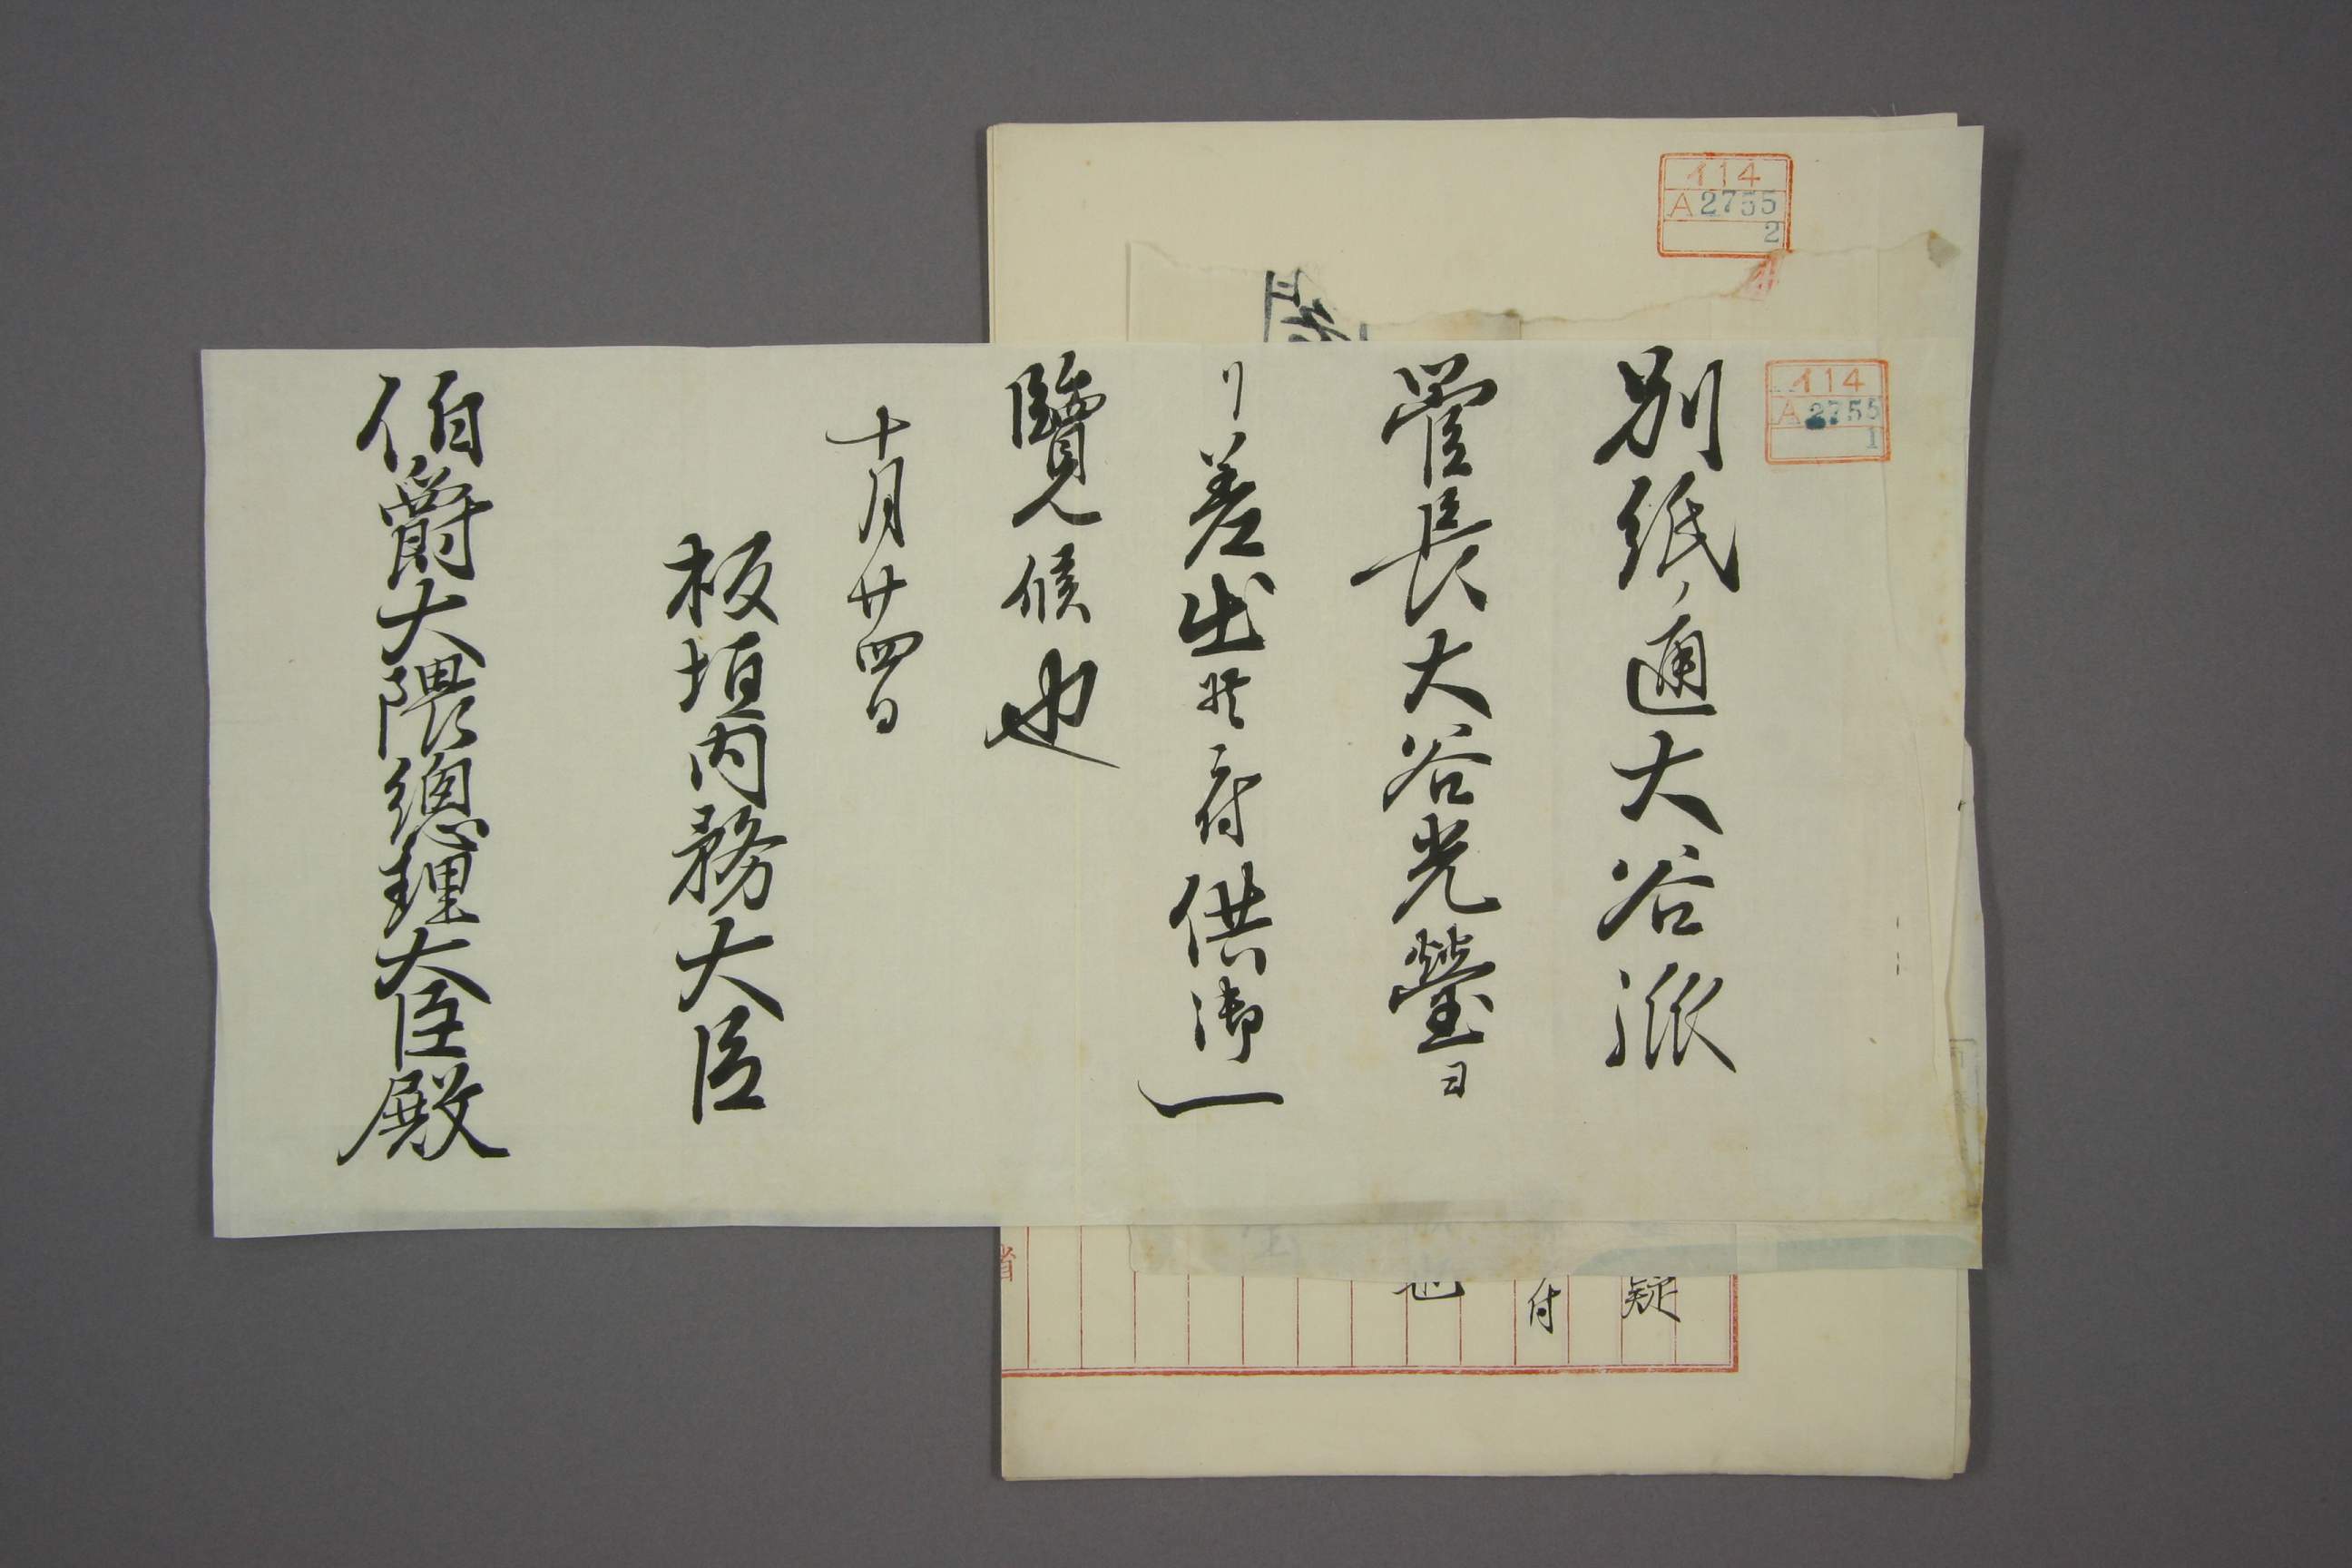 イ14
A2755
2
イ14
A2755
1
別紙ノ通大谷派
管長大谷光瑩ヨ
リ差出候ニ付供御一
覽候也
十月廿四日
板垣内務大臣
伯爵大隈總理大臣殿
疑
付
也
省